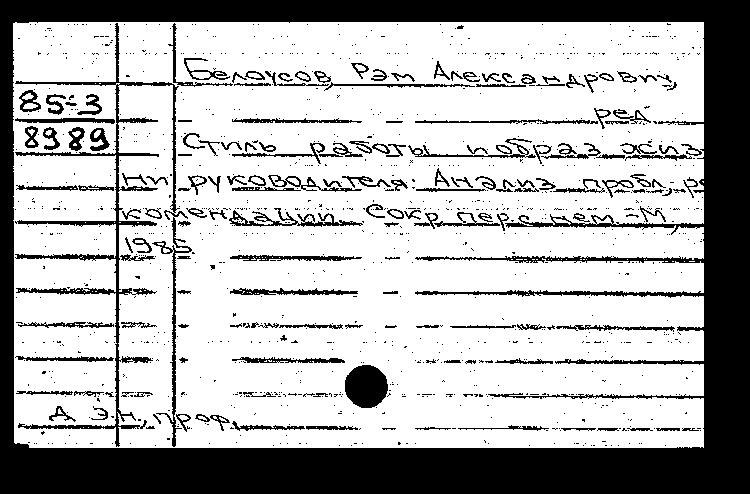 Белоусов, Рэм Александрович,
85-3
ред
8989
Стиль работы и образ жиз-
ни руководителя: Анализ пробл, ре
комендации. Сокр. пер. с нем. - М,
1985
д. э. н., проф.